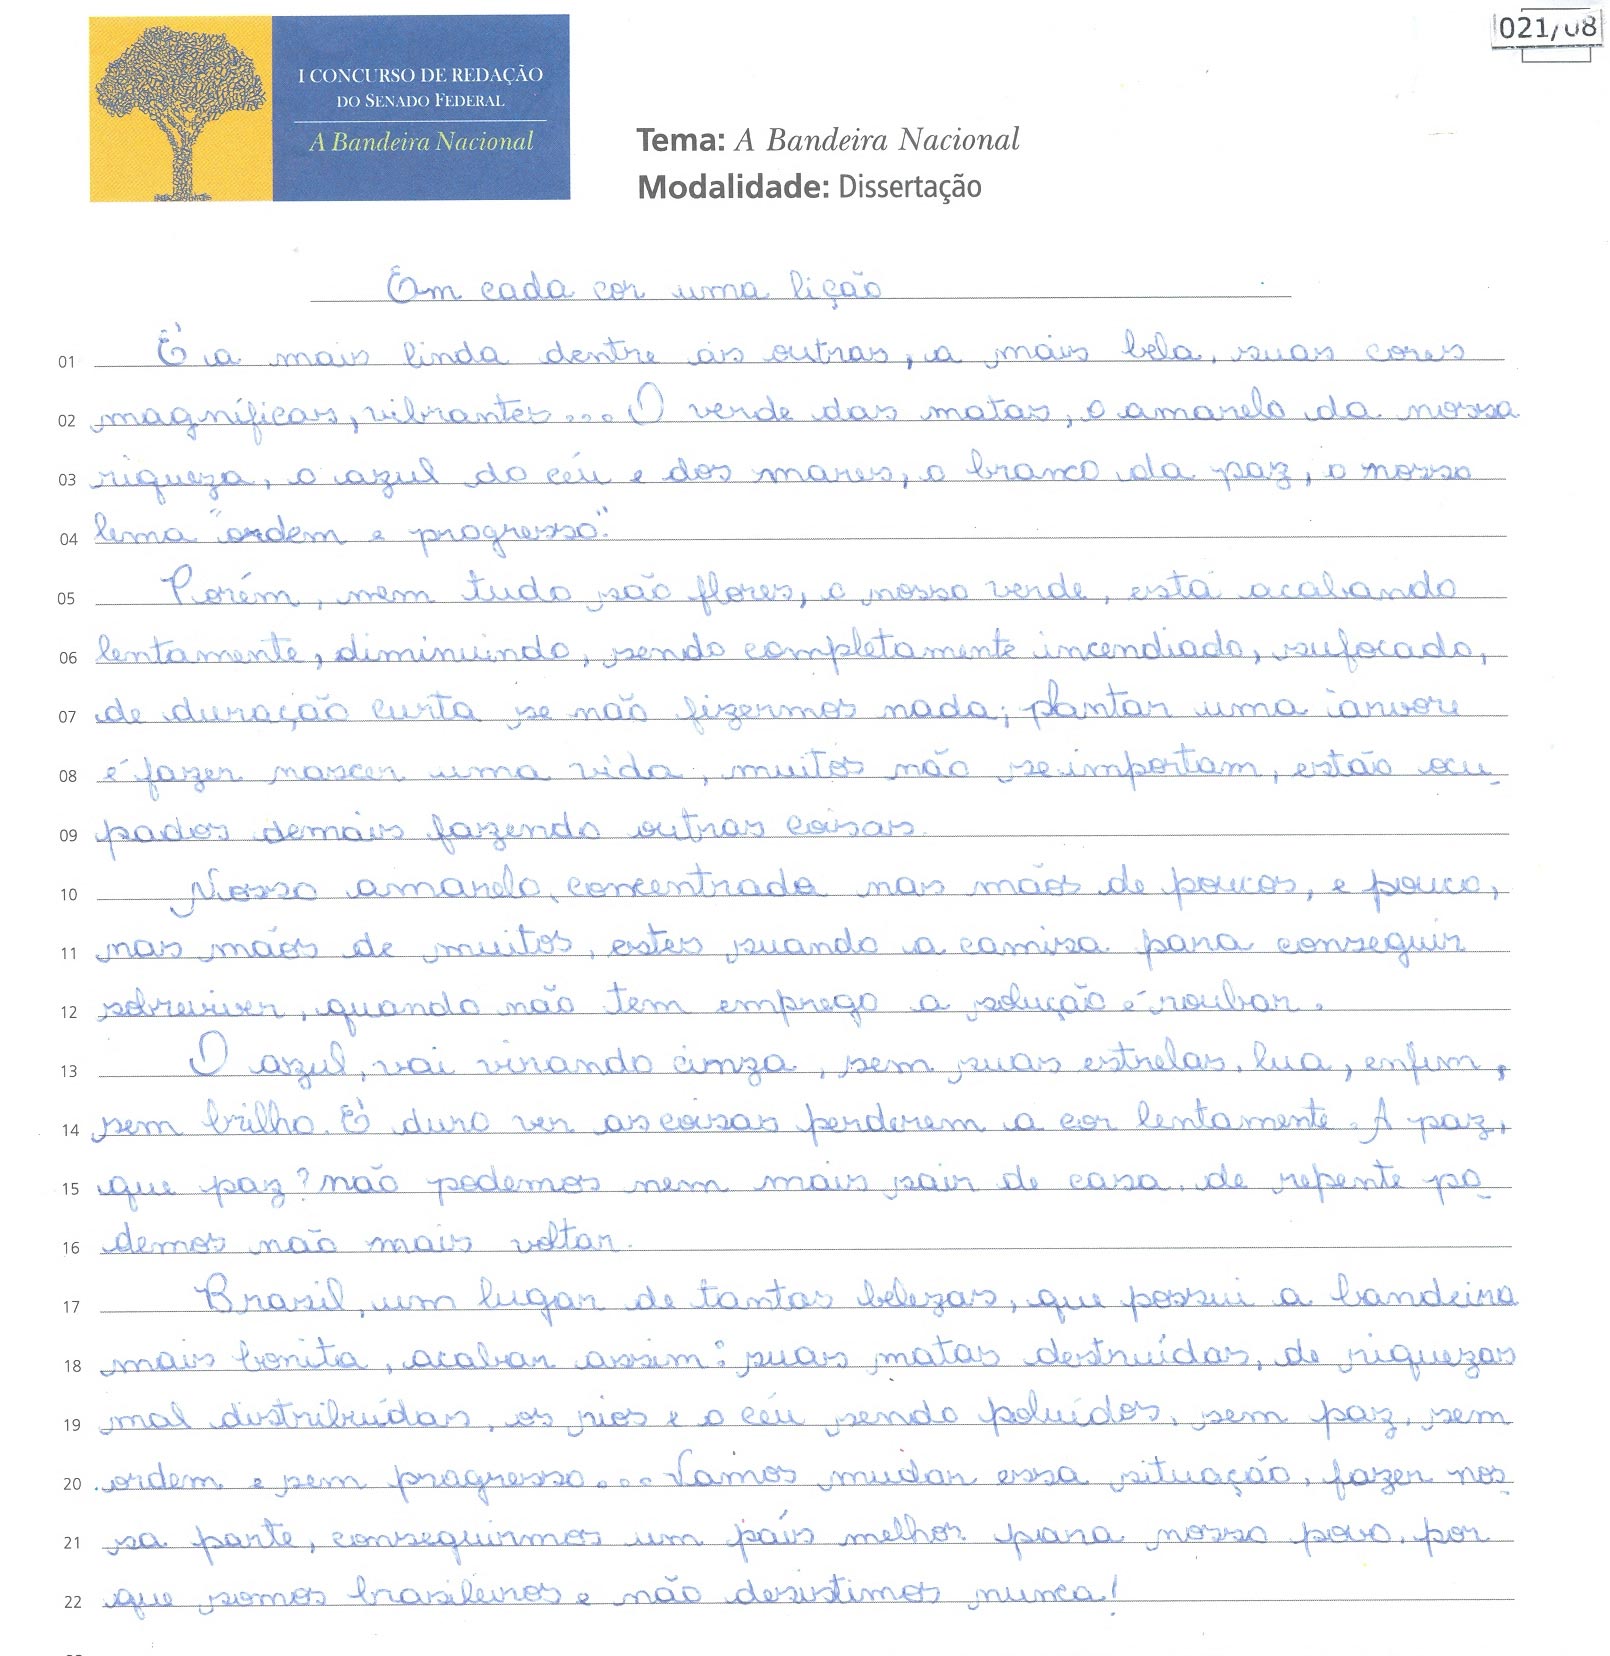 021/08
I CONCURSO DE REDAÇÃO
DO SENADO FEDERAL
A Bandeira Nacional
Tema: A Bandeira Nacional
Modalidade: Dissertação
Em cada cor uma lição
01 É a mais linda dentre as outras, a mais bela, suas cores
02 magníficas, vibrantes... O verde das matas, o amarelo da nossa
03 riqueza, o azul do céu e dos mares, o branco da paz, o nosso
04 lema "ordem e progresso".
05 Porém, nem tudo são flores, o nosso verde, está acabando
06 lentamente, diminuindo, sendo completamente incendiado, sufocado,
07 de duração curta se não fizermos nada; plantar uma árvore
08 é fazer nascer uma vida, muitos não se importam, estão ocu-
09 pados demais fazendo outras coisas.
10 Nosso amarelo, concentrado nas mãos de poucos, e pouco,
11 nas mãos de muitos, estes suando a camisa para conseguir
12 sobreviver, quando não tem emprego a solução é roubar.
13 O azul, vai virando cinza, sem suas estrelas, lua, enfim,
14 sem brilho. É duro ver as coisas perderem a cor lentamente. A paz,
15 que paz? não podemos nem mais sair de casa, de repente po-
16 demos não mais voltar.
17 Brasil, um lugar de tantas belezas, que possui a bandeira
18 mais bonita, acabar assim: suas matas destruídas, de riquezas
19 mal distribuídas, os rios e o céu sendo poluídos, sem paz, sem
20 ordem e sem progresso... Vamos mudar essa situação, fazer nos-
21 sa parte, conseguirmos um país melhor para nosso povo, por
22 que somos brasileiros e não desistimos nunca!